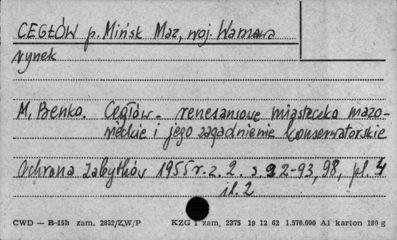 CEGŁÓW p. Mińsk Maz, woj. Warszawa
rynek
M. Benko. Cegłów - renesansowe miasteczko mazo-
wieckie i jego zagadnienie konserwatorskie
Ochrona Zabytków 1955 r. z. 2. s. 92-93, 98, pl. 4
il. 2
CWD — B-15b zam. 2832/Z/W/P KZG 1 zam. 2375 19 12 62 1.570.000 A1 karton 180 g